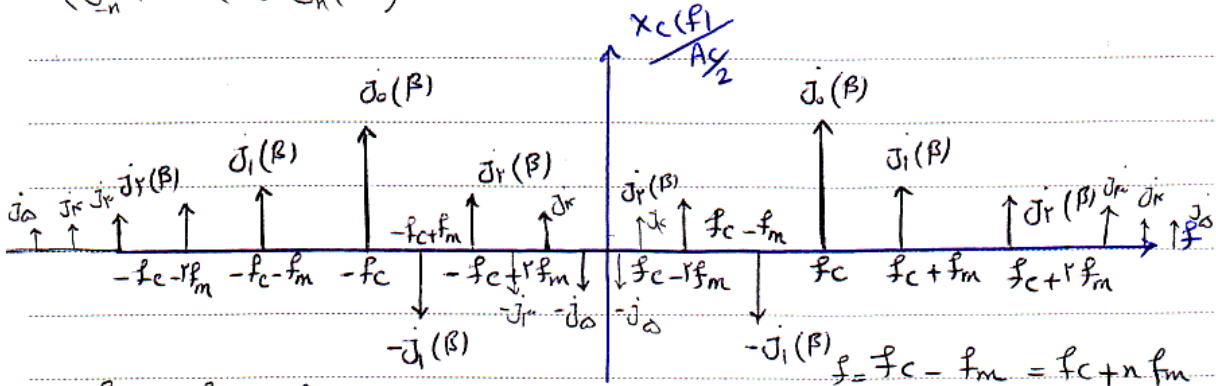 (J₋n
Xc(f) / Ac/2
J₀(β) J₀(β)
J₁(β) J₁(β)
J۵ J۴ J۳ J۲(β) J۲(β) J۴ J۲(β) J۴ J۲(β) J۳ J۴ J۵
-fc+fm fc-fm f
-fc-۲fm -fc-fm -fc -fc+۲fm fc-۲fm fc fc+fm fc+۲fm
-J۳ -J۵ -J۵
-J₁(β) -J₁(β)
f = fc - fm = fc + n fm